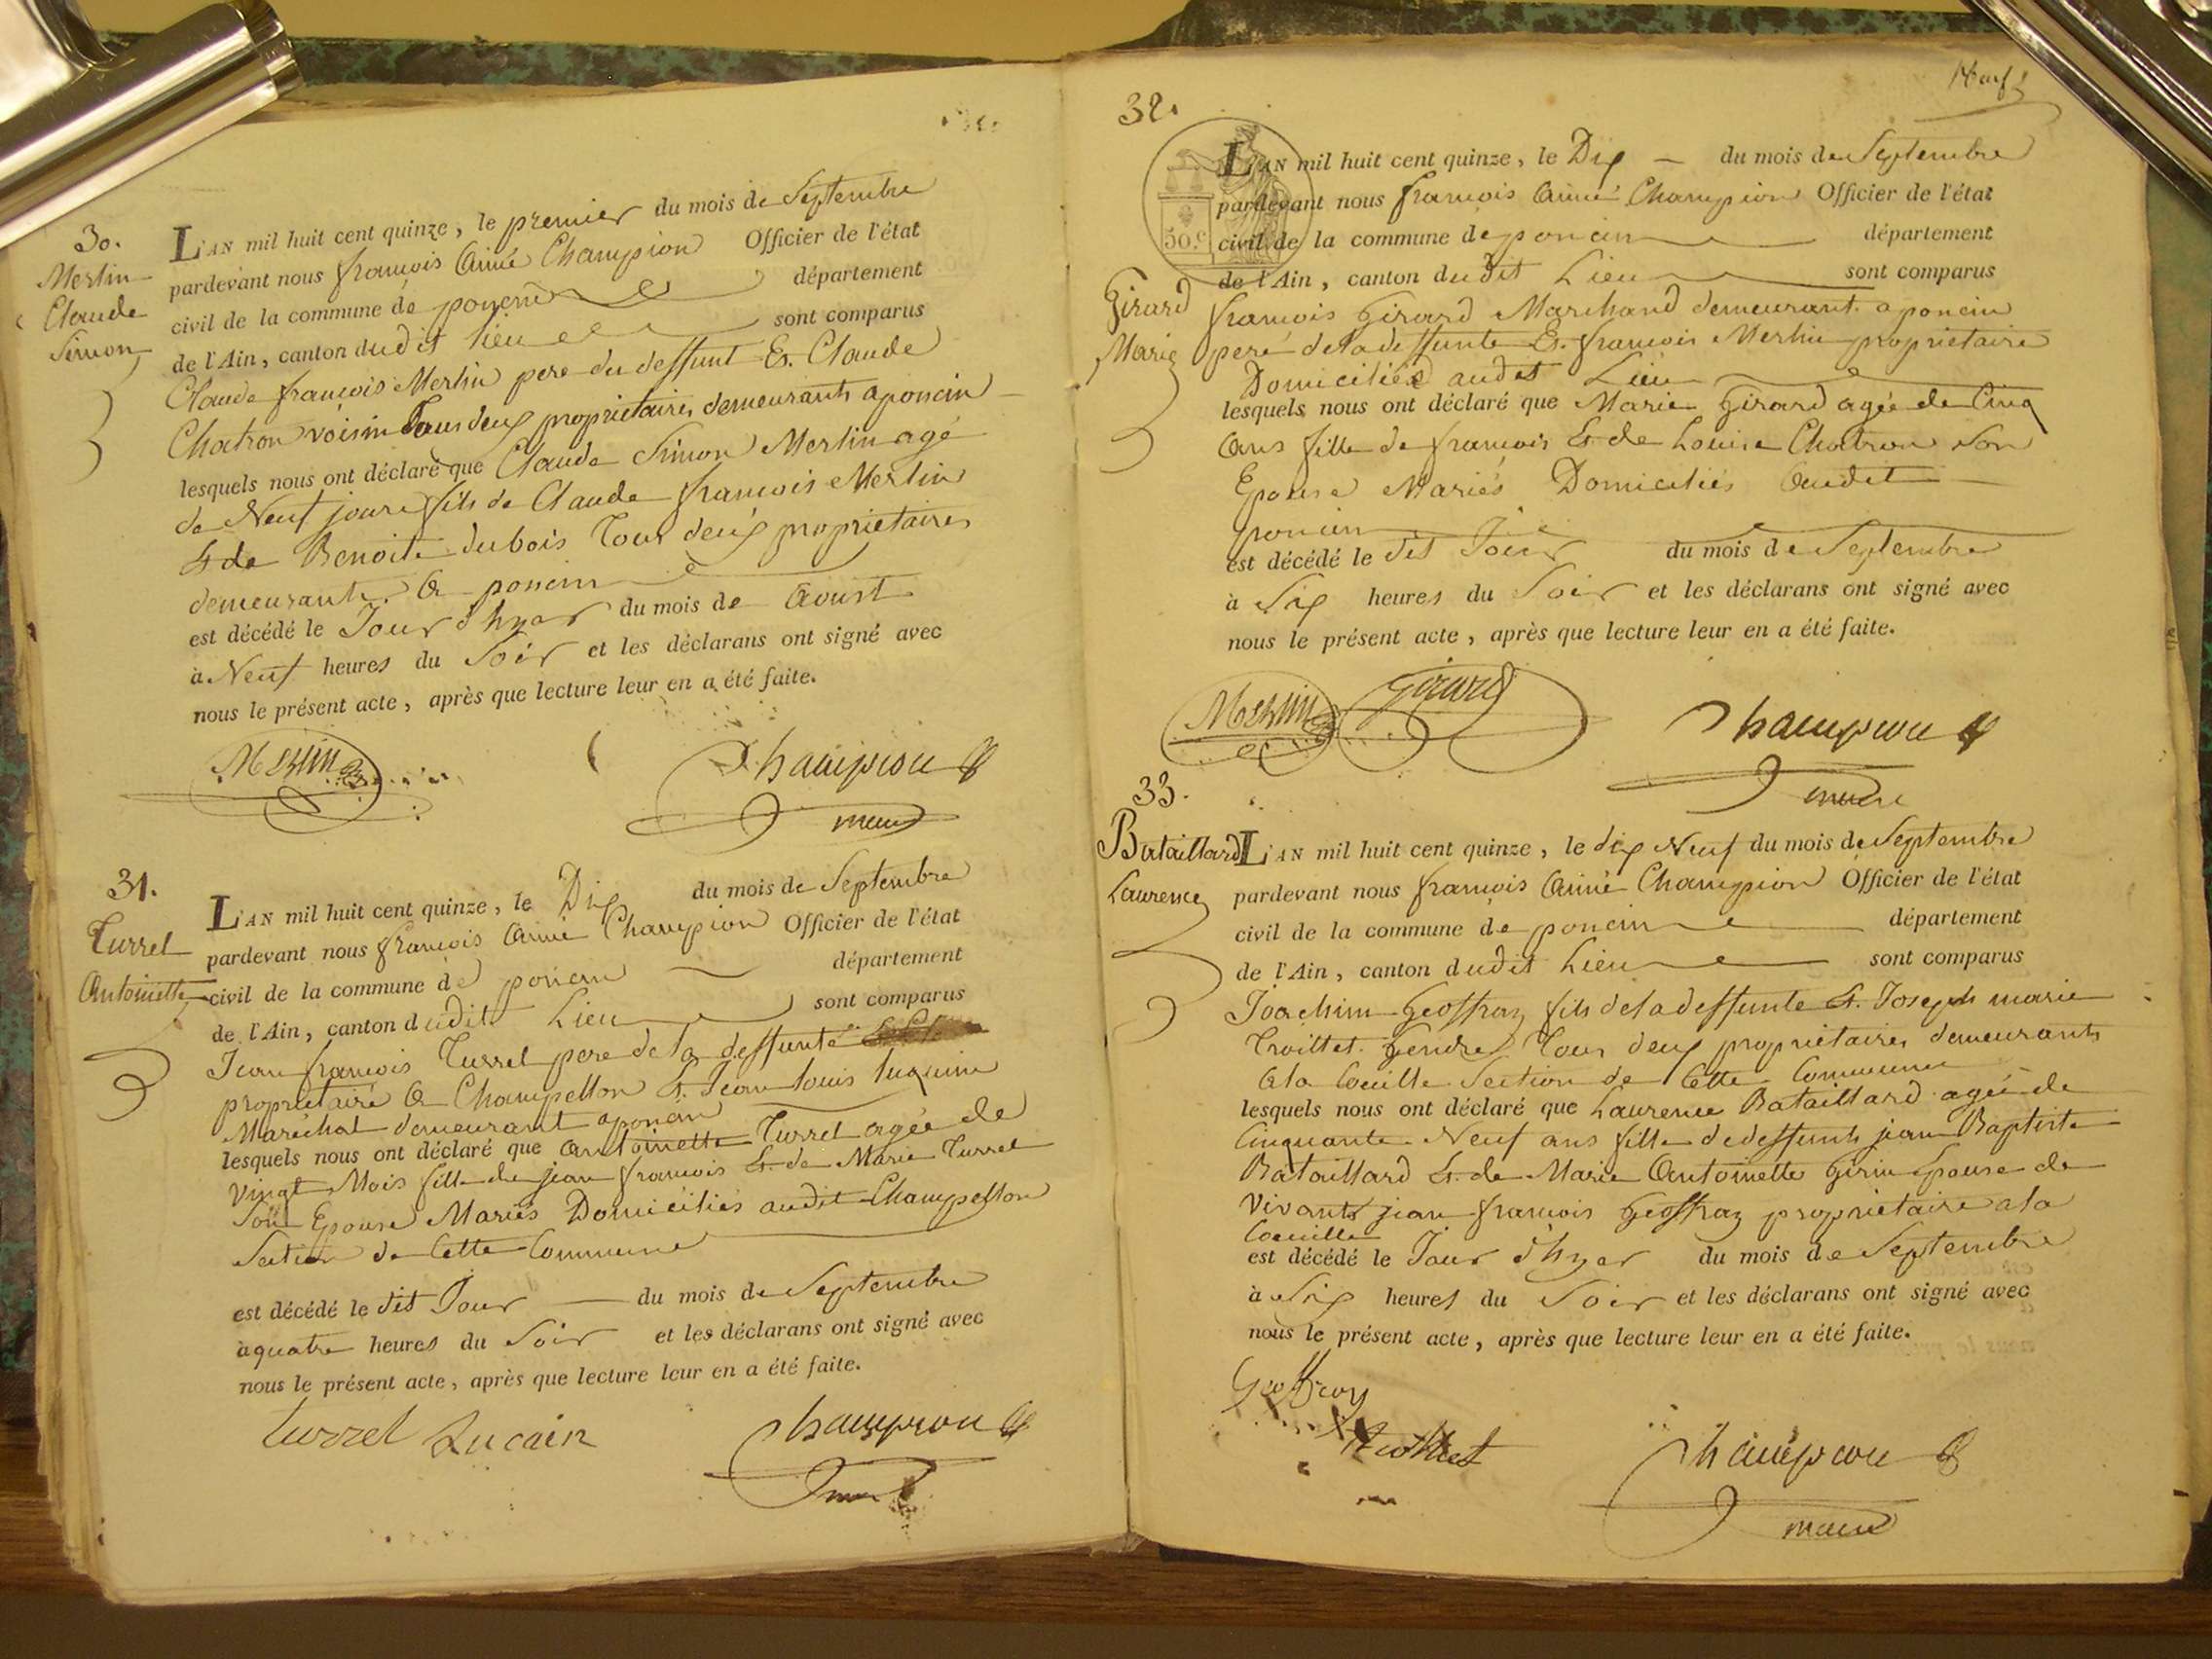 30.
Merlin
Claude
Simon
L'AN mil huit cent quinze, le premier du mois de Septembre
pardevant nous françois Aimé Champion Officier de l'état
civil de la commune de poncin département
de l'Ain, canton dudit lieu sont comparus
Claude françois Merlin pere du deffunt Et. Claude
Chatron voisin Tous deux propriétaires demeurants a poncin
lesquels nous ont déclaré que Claude Simon Merlin agé
de Neuf jours fils de Claude françois Merlin
Et de Benoite dubois Tous deux propriétaires
demeurants A poncin
est décédé le Jour d'hyer du mois de Aoust
à Neuf heures du Soir et les déclarans ont signé avec
nous le présent acte, après que lecture leur en a été faite.
Merlin Champion
maire
31.
Turrel
Antoinette
L'AN mil huit cent quinze, le Dix du mois de Septembre
pardevant nous françois Aimé Champion Officier de l'état
civil de la commune de poncin département
de l'Ain, canton dudit Lieu sont comparus
Jean françois Turrel pere de la deffunte
propriétaire A Champellon Et. Jean Louis
Maréchal demeurant a poncin
lesquels nous ont déclaré que antoinette Turrel agée de
Vingt Mois fille de jean françois Et de Marie Turrel
Son Epouse Mariés Domiciliés audit Champellon
Section de Cette Commune
est décédé le dit Jour du mois de Septembre
à quatre heures du Soir et les déclarans ont signé avec
nous le présent acte, après que lecture leur en a été faite.
turrel Lucain Champion
maire
Neuf
32.
50.c
Girard
Marie
L'AN mil huit cent quinze, le Dix du mois de Septembre
pardevant nous françois Aimé Champion Officier de l'état
civil de la commune de poncin département
de l'Ain, canton dudit Lieu sont comparus
françois Girard Marchand demeurant a poncin
pere de la deffunte Et. françois Merlin propriétaire
Domiciliés audit Lieu
lesquels nous ont déclaré que Marie Girard agée de Cinq
Ans fille de françois Et de Louise Chatron Son
Epouse Mariés Domiciliés Audit
poncin
est décédé le dit Jour du mois de Septembre
à Six heures du Soir et les déclarans ont signé avec
nous le présent acte, après que lecture leur en a été faite.
Merlin Girard Champion
maire
33.
Bataillard
Laurence
L'AN mil huit cent quinze, le dix Neuf du mois de Septembre
pardevant nous françois Aimé Champion Officier de l'état
civil de la commune de poncin département
de l'Ain, canton dudit Lieu sont comparus
Joachim Geoffray fils de la deffunte Et. Joseph marie
Troillet Gendre Tous deux propriétaires demeurants
A la Coeuille Section de Cette Commune
lesquels nous ont déclaré que Laurence Bataillard agée de
Cinquante Neuf ans fille de deffunts jean Baptiste
Bataillard Et. de Marie Antoinette Girin Epouse de
Vivant jean françois Geoffray propriétaire a la
Coeuille
est décédé le Jour d'hyer du mois de Septembre
à Six heures du Soir et les déclarans ont signé avec
nous le présent acte, après que lecture leur en a été faite.
Geoffray
Troillet Champion
maire